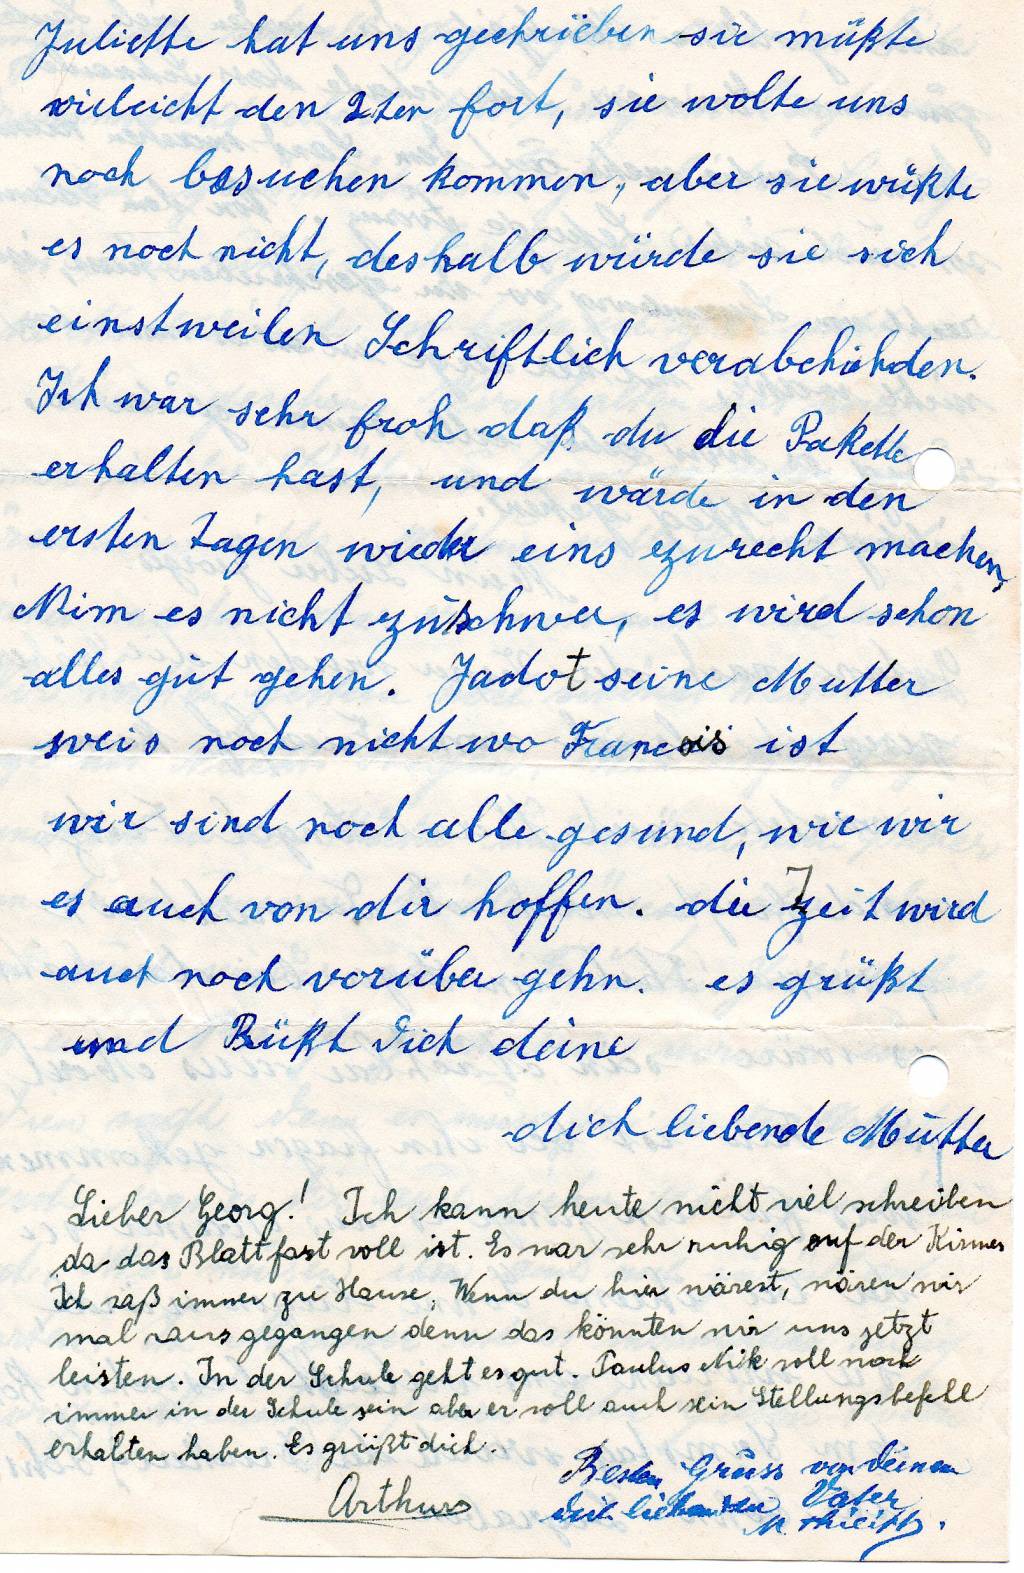 Juliette hat uns geehrieben sie müßte
vieleicht den 2ten fort, sie wolte uns
noch besuchen kommen, aber sie wüßte
es noch nicht, deshalb würde sie sich
einstweilen Schriftlich verabchiehden.
Ich war sehr froh daß du die Pakette
erhalten hast, und würde in den
ersten Tagen wieder eins zurecht machen,
Nim es nicht zu schwer, es wird schon
alles gut gehen. Jadot seine Mutter
weis noch nicht wo Francois ist
wir sind noch alle gesund, wie wir
es auch von dir hoffen. die Zeit wird
auch noch vorüber gehn. es grüßt
und Küßt dich deine
dich liebende Mutter
Lieber Georg! Ich kann heute nicht viel schreiben
da das Blatt fast voll ist. Es war sehr ruhig auf der Kirmes
Ich saß immer zu Hause, Wenn du hier wärest, wären wir
mal raus gegangen denn das könnten wir uns jetzt
leisten. In der Schule geht es gut. Paulus Nik soll noch
immer in der Schule sein aber er soll auch sein Stellungsbefehl
erhalten haben. Es grüßt dich.
Arthur
Besten Gruss von deinem
dich liebenden Vater